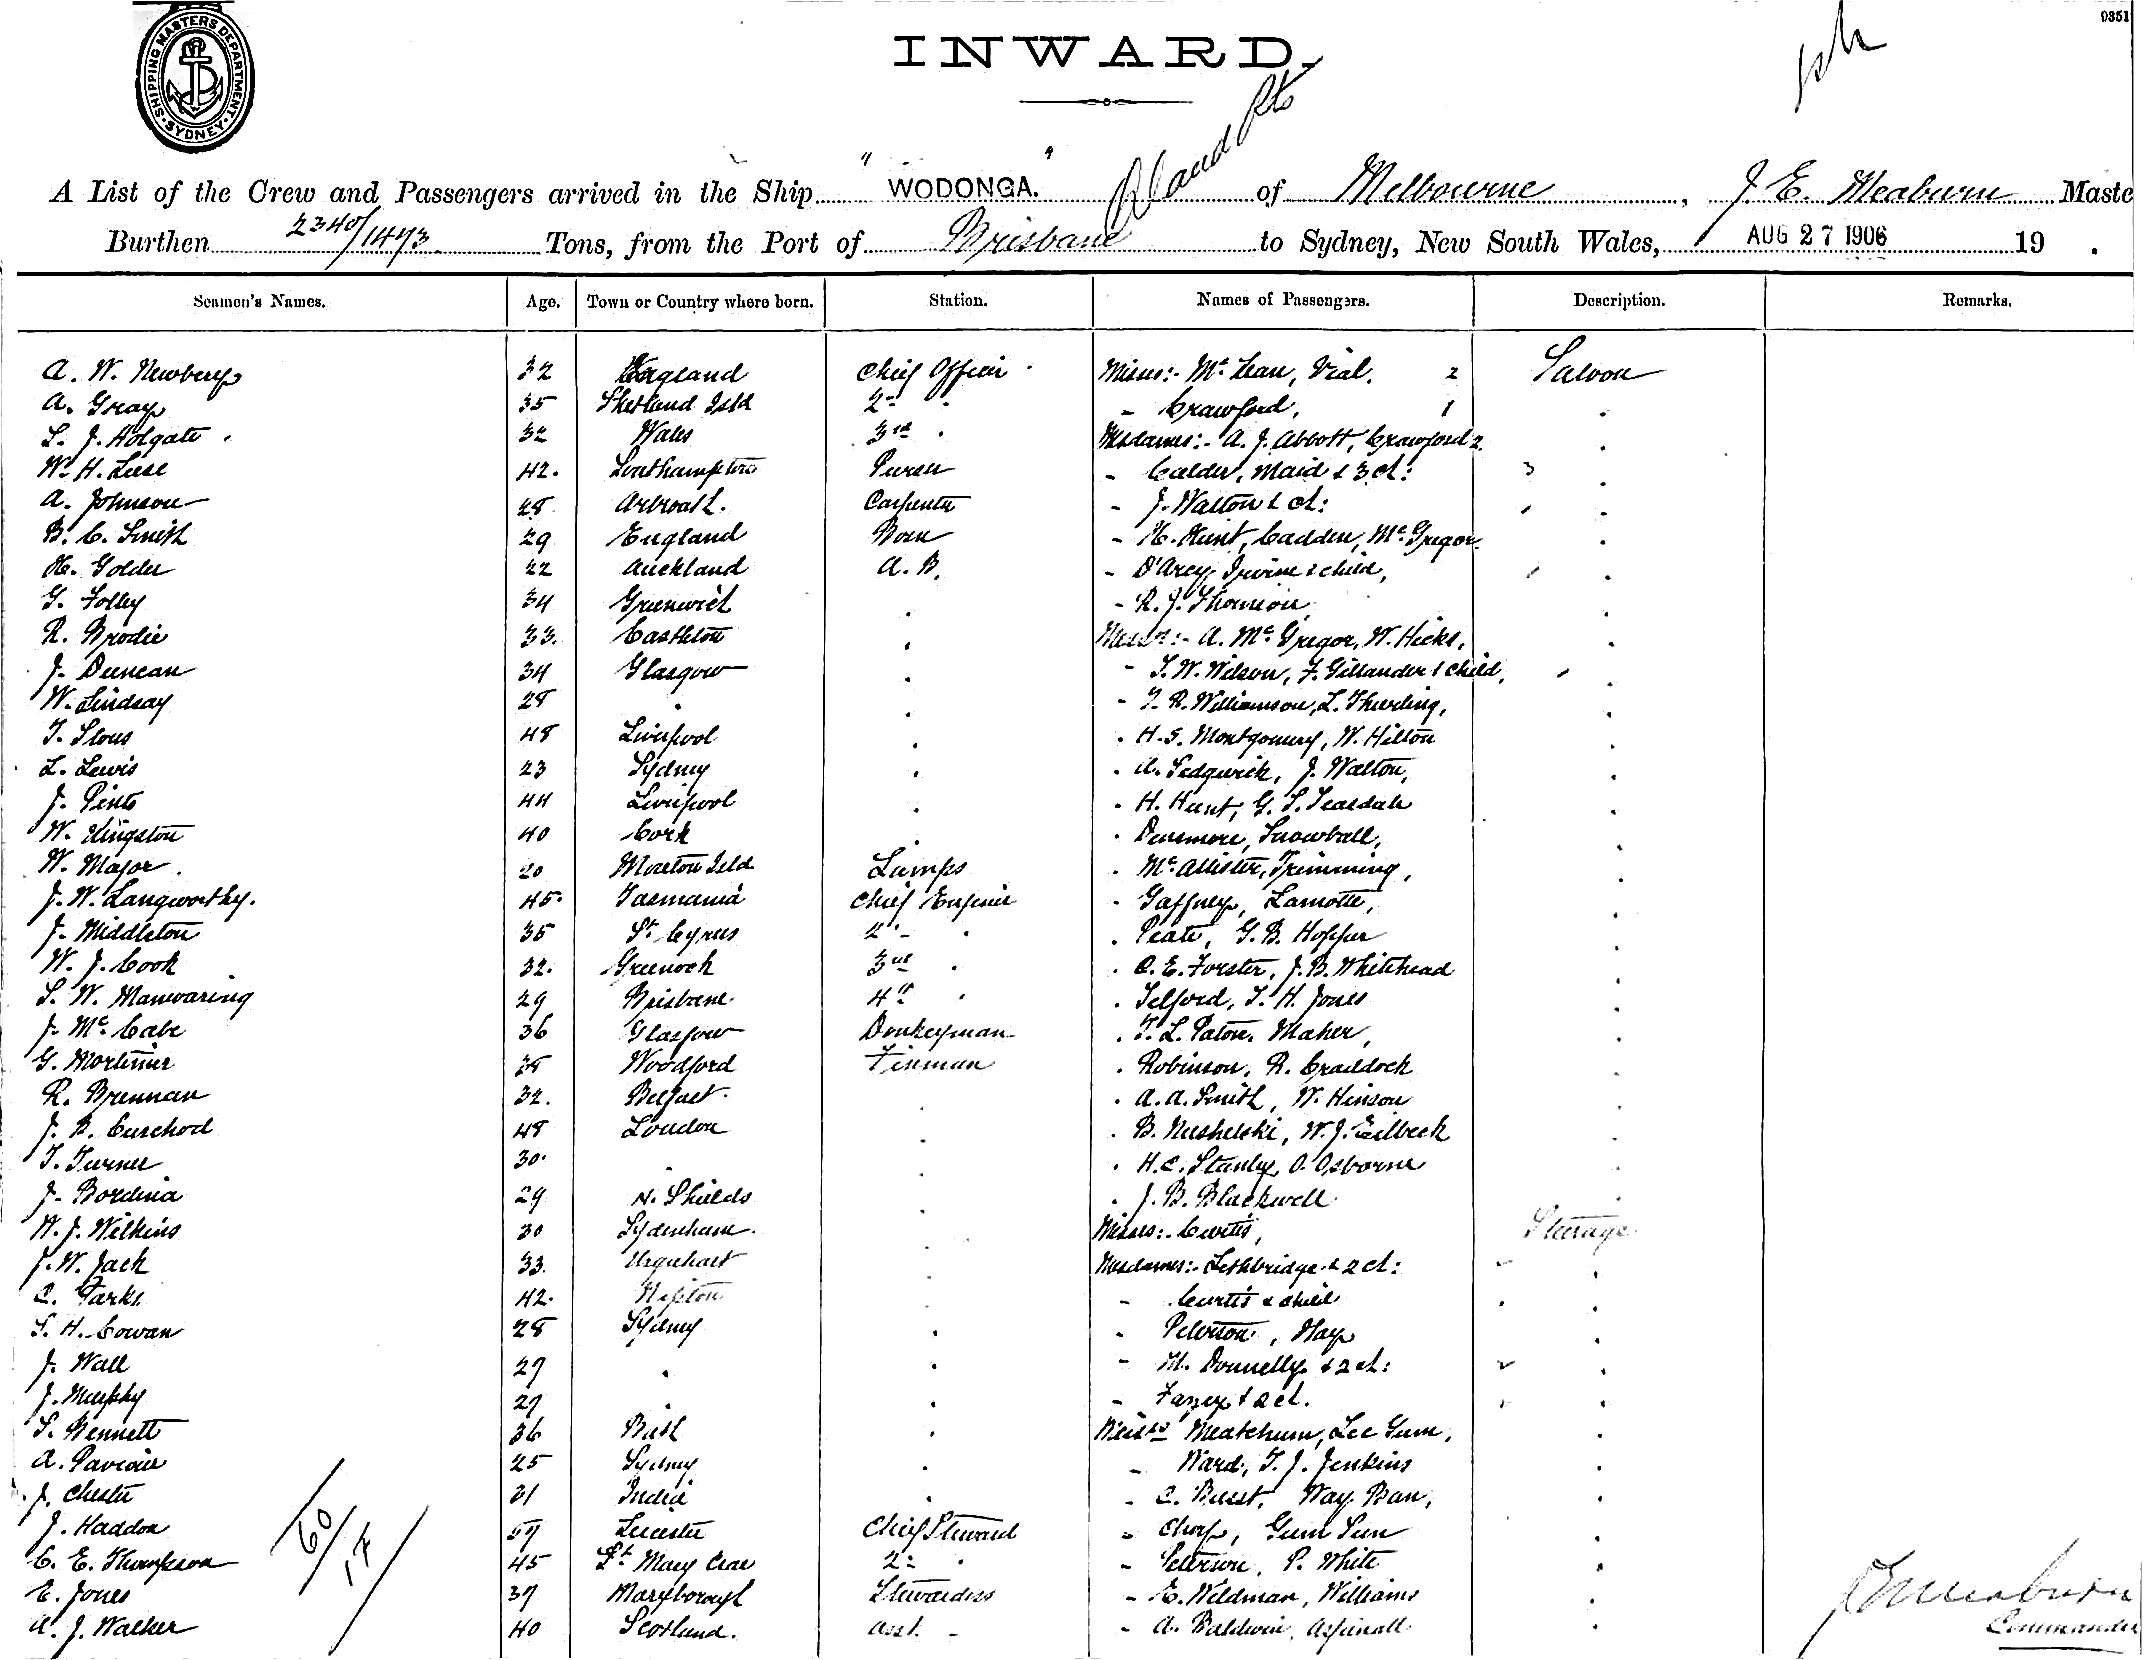 9351
INWARD.
SHIPPING MASTERS DEPARTMENT
SYDNEY
A List of the Crew and Passengers arrived in the Ship "WODONGA." of Melbourne, J. E. Meaburn Maste
Burthen 2340/1473 Tons, from the Port of Brisbane to Sydney, New South Wales, AUG 27 1906 19 .
Seamen's Names. Age. Town or Country where born. Station. Names of Passengers. Description. Remarks.
A. W. Newbery 32 England Chief Officer Misses:- McLean, Vial. 2 Saloon
A. Gray 35 Shetland Isld 2nd - Crawford, 1
S. J. Holgate 32 Wales 3rd Mesdames:- A. J. Abbott, Crawford 2
W. H. Luse 42. Southampton Purser - Calder, Maid & 3 ch: 3
A. Johnson 28 Arbroath. Carpenter - J. Walton & ch:
B. C. Smith 29 England Bosn - H. Hunt, Cadden, McGregor
H. Golder 22 Auckland A. B. - D'Arcy Irvine & child,
G. Folley 34 Greenwich - R. J. Thomson
R. Brodie 33. Castleton Messrs:- A. McGregor, W. Hicks,
J. Duncan 34 Glasgow - S. W. Wilson, F. Gillander & child,
W. Lindsay 28 - T. R. Williamson, L. Thurling,
T. Slous 48 Liverpool H. S. Montgomery, W. Hilton
L. Lewis 23 Sydney A. Sedgwick, J. Walton,
J. Pinto 44 Liverpool H. Hunt, G. S. Teasdale
W. Kingston 40 Cork Densmore, Snowball,
W. Major 20 Moreton Isld Lamps McAllister, Trimming,
J. W. Langworthy. 45. Tasmania Chief Engineer Gaffney, Lamotte,
J. Middleton 35 St. Cyrus 2nd Peate, G. B. Hopper
W. J. Cook 32. Greenock 3rd C. E. Forster, J. B. Whitehead
S. W. Manwaring 29 Brisbane. 4th Telford, T. H. Jones
J. McCabe 36 Glasgow Donkeyman T. L. Paton, Maher,
G. Mortimer 38 Woodford Fireman Robinson, R. Craddock
R. Brennan 32. Belfast. A. A. Smith, W. Hinson
J. B. Curchod 48 London B. Nushelski, W. J. Eilbeck
T. Turner 30. H. C. Stanley, O. Osborne
J. Bordina 29 N. Shields J. B. Blackwell
W. J. Wilkins 30 Sydenham. Misses:- Curtis, Steerage
J. W. Jack 33. Urquhart Mesdames:- Lethbridge & 2 ch:
C. Parks 42. - Curtis & child
S. H. Cowan 28 Sydney - Peterson, Hay
J. Wall 27 - M. Donnelly & 2 ch:
J. Murphy 27 - Fahey & 2 ch.
S. Bennett 36 Bath Messrs Meatchum, Lee Gum,
A. Paviour 25 Sydney - Ward, T. J. Jenkins
J. Chester 31 India - C. Busst, Way Ban,
J. Haddon 57 Leicester Chief Steward - Choy, Gum Sun
C. E. Thompson 45 St. Mary Cray 2nd - Peterson, P. White
E. Jones 37 Maryborough Stewardess - E. Wildman, Williams
A. J. Walker 40 Scotland. Asst. - A. Baldwin, Aspinall
60/17
J E Meaburn
Commander